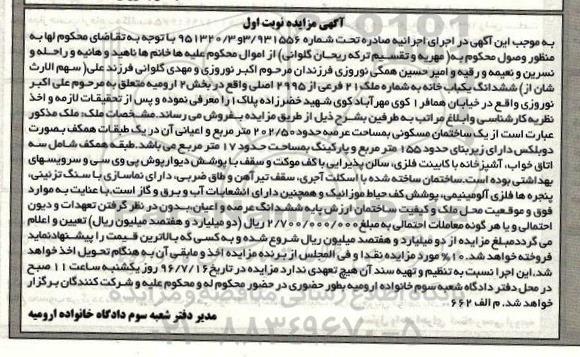 آگهی مزایده نوبت اول
به موجب این آگهی در اجرای اجرائیه صادره تحت شماره ۳/۹۳۱۵۵۶و۹۵۱۳۲۰/۳ با توجه به تقاضای محکوم لها به
منظور وصول محکوم به( مهریه و تقسیم ترکه ریحان گلوانی) از اموال محکوم علیه ها خانم ها ناهید و هانیه و راحله و
نسرین و نعیمه و رقیه و امیر حسین همگی نوروزی فرزندان مرحوم اکبر نوروزی و مهدی گلوانی فرزند علی( سهم الارث
شان از) ششدانگ یکباب خانه به شماره ملک۲۱ فرعی از ۲۹۹۵ اصلی واقع در بخش۲ ارومیه متعلق به مرحوم علی اکبر
نوروزی واقع در خیابان همافر۱کوی مهرآباد کوی شهید خضرزاده پلاک۱را معرفی نموده و پس از تحقیقات لازمه و اخذ
نظریه کارشناسی و ابلاغ مراتب به طرفین بشرح ذیل از طریق مزایده بفروش می رساند.مشخصات ملک: ملک مذکور
عبارت است از یک ساختمان مسکونی بمساحت عرصه حدود ۲۰۲/۵۰ متر مربع و اعیانی آن در یک طبقات همکف بصورت
دوبلکس دارای زیربنای حدود ۱۵۵ متر مربع و پارکینگ بمساحت حدود ۱۷ متر مربع می باشد.طبقه همکف شامل سه
اتاق خواب، آشپزخانه با کابینت فلزی، سالن پذیرایی با کف موکت و سقف با پوشش دیوارپوش پی وی سی و سرویسهای
بهداشتی بوده است.ساختمان ساخته شده با اسکلت آجری، سقف تیرآهن و طاق ضربی، دارای نماسازی با سنگ تزئینی،
پنجره ها فلزی آلومینیمی، پوشش کف حیاط موزائیک و همچنین دارای انشعابات آب و برق و گاز است.با عنایت به موارد
فوق و موقعیت محل ملک و کیفیت ساختمان ارزش پایه ششدانگ عرصه و اعیان،بدون در نظر گرفتن تعهدات و دیون
احتمالی و یا هر گونه معاملات احتمالی به مبلغ ۲/۷۰۰/۰۰۰/۰۰۰ ریال (دو میلیارد و هفتصد میلیون ریال) تعیین و اعلام
می گرددمبلغ مزایده از دو میلیارد و هفتصد میلیون ریال شروع شده و به کسی که بالاترین قیمت را پیشنهادنماید
فروخته خواهد شد.۱۰% مورد مزایده نقدا و فی المجلس از برنده مزایده اخذ و مابقی آن به هنگام تحویل اخذ خواهد
شد.این اجرا نسبت به تنظیم و تهیه سند آن هیچ تعهدی ندارد مزایده در تاریخ ۹۶/۷/۱۶ روز یکشنبه ساعت ۱۱ صبح
در محل دفتر دادگاه شعبه سوم خانواده ارومیه بطور حضوری در حضور محکوم له و محکوم علیه و شرکت کنندگان برگزار
خواهد شد. م الف ۶۶۲
مدیر دفتر شعبه سوم دادگاه خانواده ارومیه